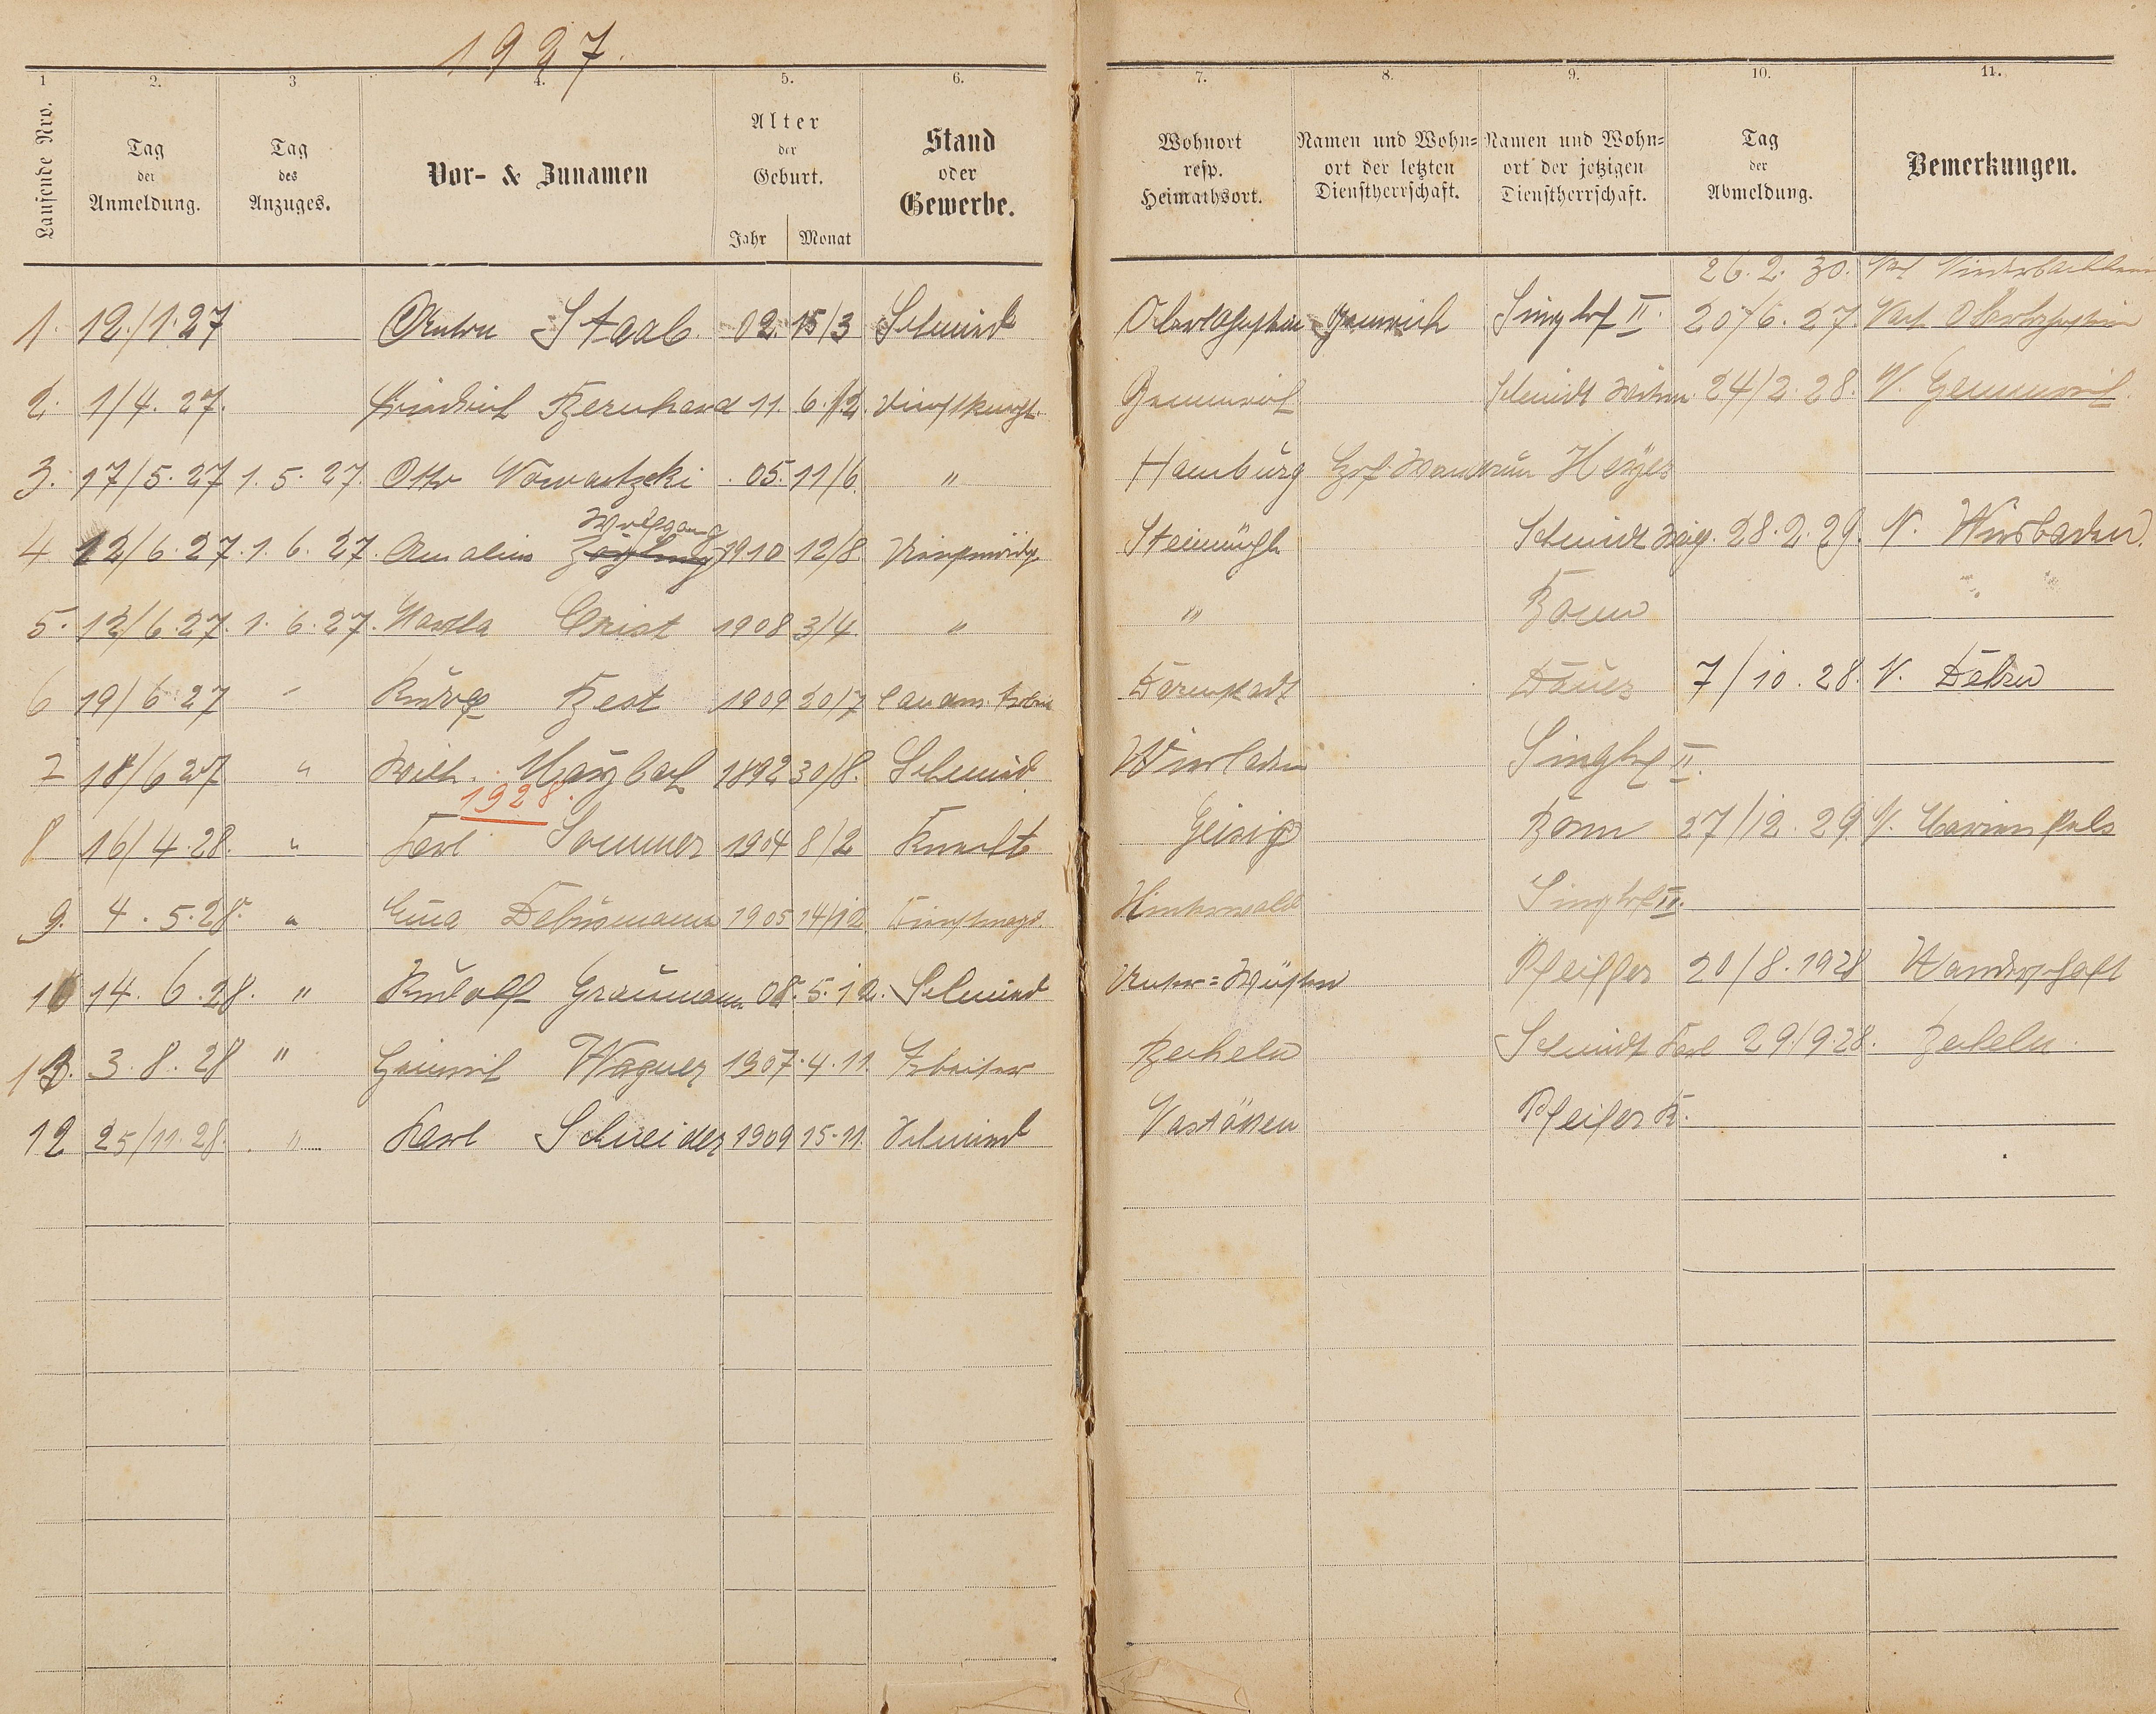 1927.
1 2. 3 4. 5. 6. 7. 8. 9. 10. 11.
Laufende Nro.
Tag der Anmeldung.
Tag des Anzuges.
Vor- & Zunamen
Alter der Geburt.
Jahr Monat
Stand oder Gewerbe.
Wohnort resp. Heimathsort.
Namen und Wohnort der letzten Dienstherrschaft.
Namen und Wohnort der jetzigen Dienstherrschaft.
Tag der Abmeldung.
Bemerkungen.
26. 2. 30.
1. 12./1.27 Anton Staab 02. 15/3 Schmied Gemmrich Singhof II. 20/6. 27. Nach Oberlahnstein
2. 1/4. 27. Friedrich Bernhard 11. 6./12. Dienstknecht Gemmrich Schmidt 24/2. 28. N. Gemmrich
3. 17/5. 27 1. 5. 27. Otto 05. 11/6. " Hamburg
Wolfgang
4 12/6. 27. 1. 6. 27. 1910 12/8 Schmidt 28. 2. 29. N. Wiesbaden.
5. 12/6. 27. 1. 6. 27. Crist 1908 3/4. " " Bonn " "
6 19/6 27 " Best 1909 20/7 Dauer 7/10. 28. N.
7 18/6 27 " Wilh. 1892 30/8. Schmied Wiesbaden Singhof II.
1928.
8 16/4. 28. " Karl Sommer 1904 8/2 Knecht Geisig Bonn 27/12. 29. N. Marienfels
9. 4. 5. 28. " Debusmann 1905 14/12 Dienstmagd. Hinterwald Singhof II.
10 14. 6. 28. " Rudolf Graumann 08. 5. 12. Schmied Pfeiffer 20/8. 1928 Wanderschaft
3. 8. 28 " Heinrich Wagner 1907. 4. 11. Arbeiter Becheln Schmidt Karl 29./9.28. Becheln.
12 25/11. 28. " Karl Schneider 1909 15. 11. Schmied Nastätten Pfeifer K.